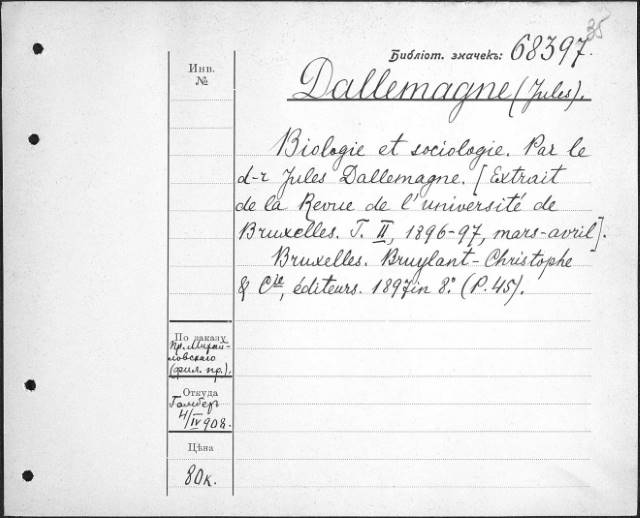 35
Библіот. значекъ: 68397.
Инв.
№
Dallemagne (Jules).
Biologie et sociologie. Par le
d-r Jules Dallemagne. [Extrait
de la Revue de l'université de
Bruxelles. T. II, 1896-97, mars-avril].
Bruxelles. Bruylant-Christophe
& Cie, éditeurs. 1897 in 8.° (P. 45).
По заказу
пр. Михай-
ловскаго
(фил. пр.).
Откуда
Гамберъ
4/IV 908.
Цѣна
80к.